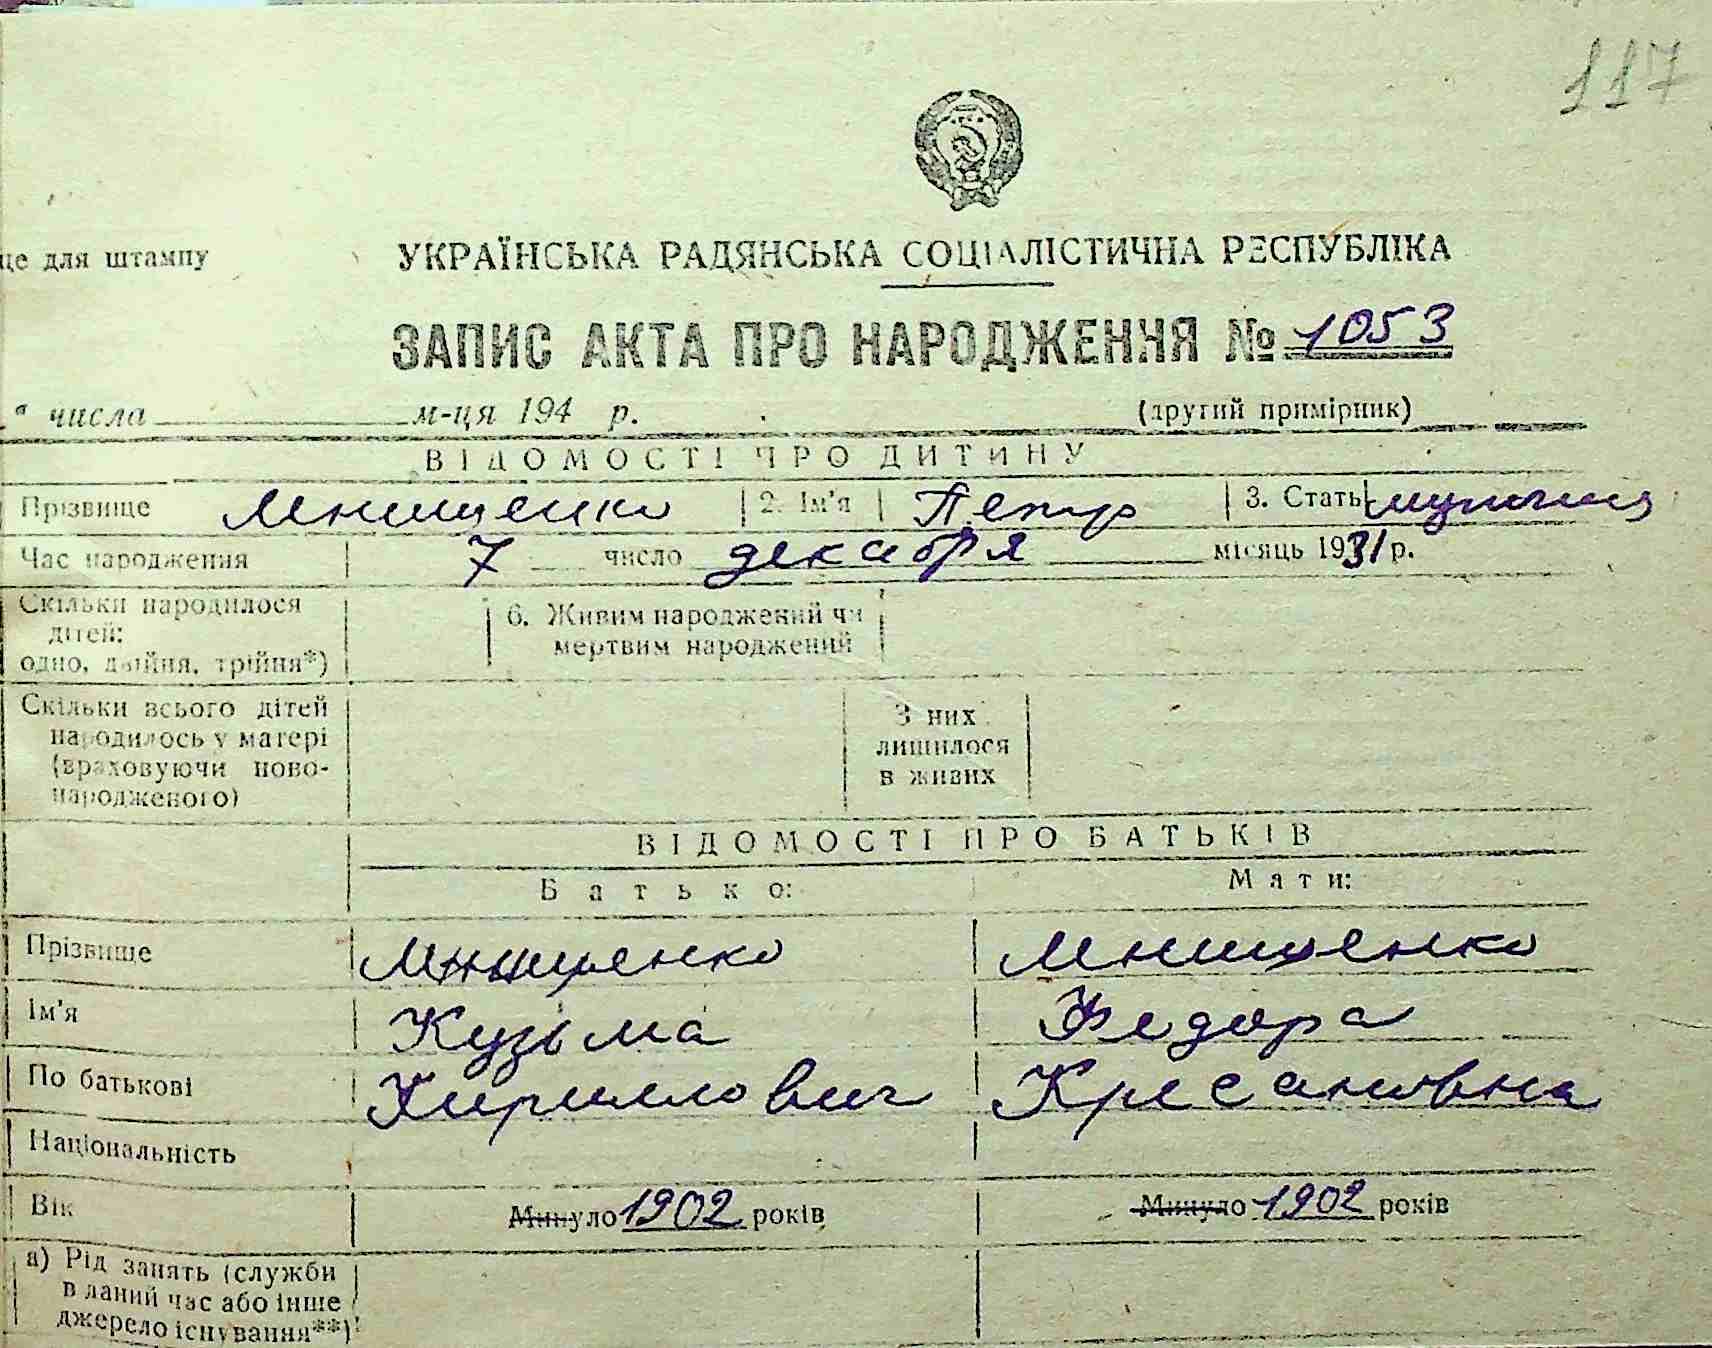 117
це для штампу
УКРАЇНСЬКА РАДЯНСЬКА СОЦІАЛІСТИЧНА РЕСПУБЛІКА
ЗАПИС АКТА ПРО НАРОДЖЕННЯ № 1053
" числа м-ця 194 р. (другий примірник)
ВІДОМОСТІ ПРО ДИТИНУ
Прізвище Мнишенко 2. Ім'я Петр 3. Стать мужчина
Час народження 7 число декабря місяць 1931 р.
Скільки народилося дітей: одно, двійня, трійня*) 6. Живим народжений чи мертвим народжений
Скільки всього дітей народилось у матері (враховуючи новонародженого) З них лишилося в живих
ВІДОМОСТІ ПРО БАТЬКІВ
Батько: Мати:
Прізвище Мнишенко Мнишенко
Ім'я Кузьма Федора
По батькові Кириллович Крисановна
Національність
Вік Минуло 1902 років Минуло 1902 років
а) Рід занять (служби
в даний час або інше
джерело існування**)